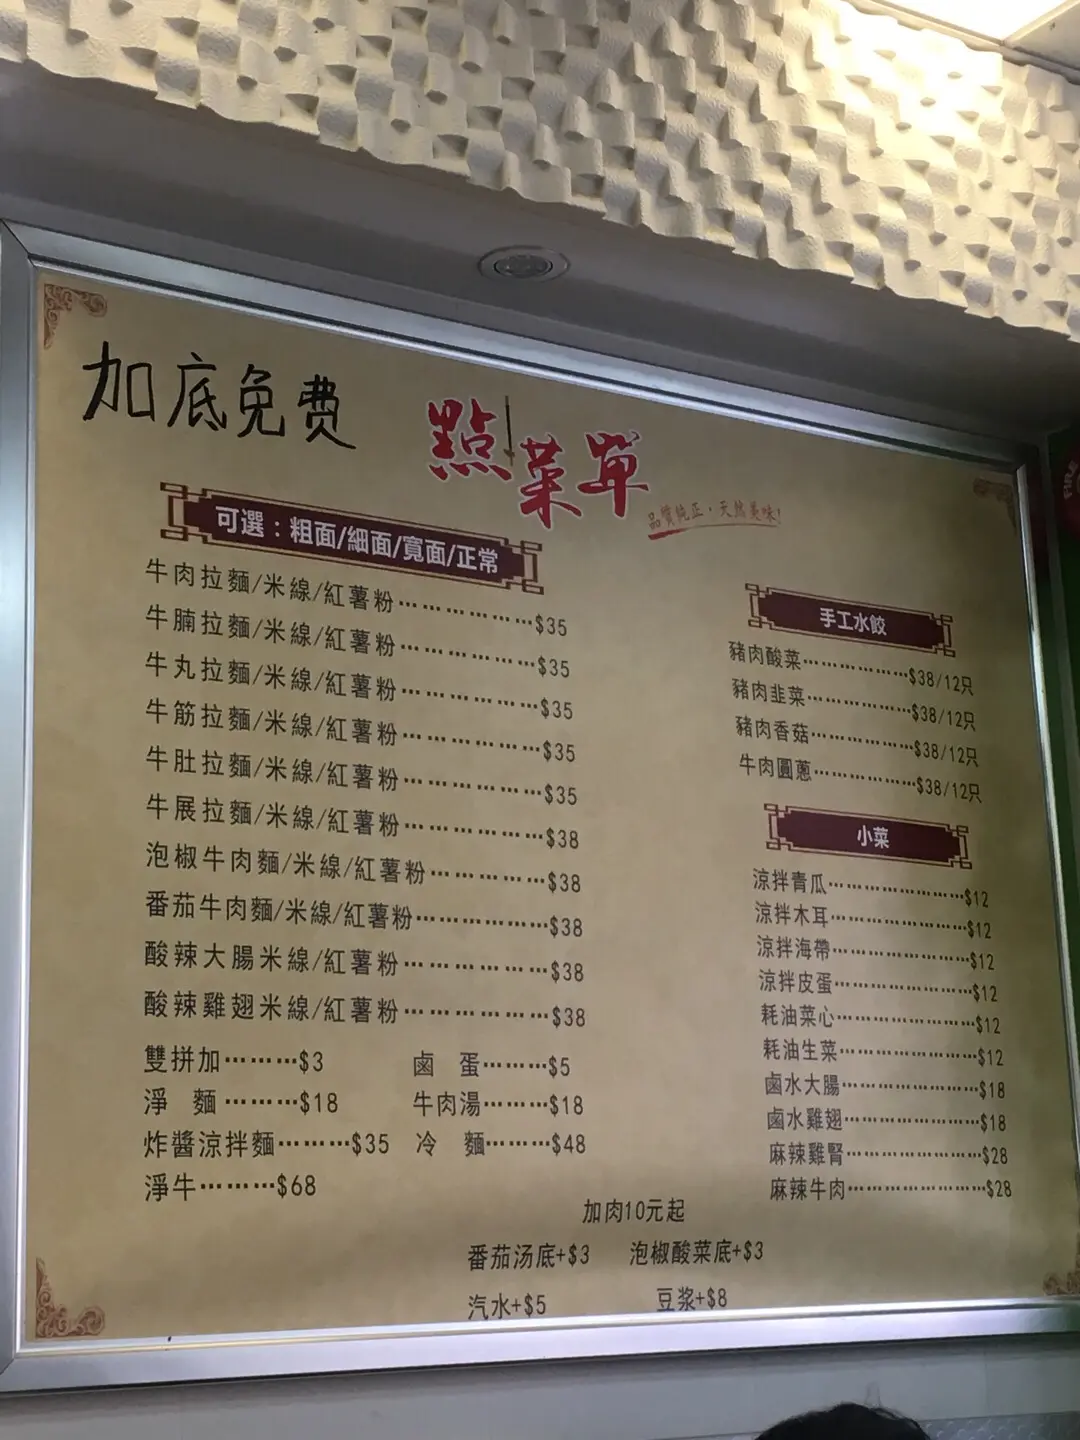 加底免费
點菜單
品質純正·天然美味!
可選：粗面/細面/寬面/正常
牛肉拉麵/米線/紅薯粉………………$35
牛腩拉麵/米線/紅薯粉………………$35
牛丸拉麵/米線/紅薯粉………………$35
牛筋拉麵/米線/紅薯粉………………$35
牛肚拉麵/米線/紅薯粉………………$35
牛展拉麵/米線/紅薯粉………………$38
泡椒牛肉麵/米線/紅薯粉……………$38
番茄牛肉麵/米線/紅薯粉……………$38
酸辣大腸米線/紅薯粉………………$38
酸辣雞翅米線/紅薯粉………………$38
雙拼加………$3
鹵 蛋………$5
淨 麵………$18
牛肉湯………$18
炸醬涼拌麵………$35
冷 麵………$48
淨牛………$68
手工水餃
豬肉酸菜………………$38/12只
豬肉韭菜………………$38/12只
豬肉香菇………………$38/12只
牛肉圓蔥………………$38/12只
小菜
涼拌青瓜………………$12
涼拌木耳………………$12
涼拌海帶………………$12
涼拌皮蛋………………$12
耗油菜心………………$12
耗油生菜………………$12
鹵水大腸………………$18
鹵水雞翅………………$18
麻辣雞腎………………$28
麻辣牛肉………………$28
加肉10元起
番茄汤底+$3 泡椒酸菜底+$3
汽水+$5 豆浆+$8